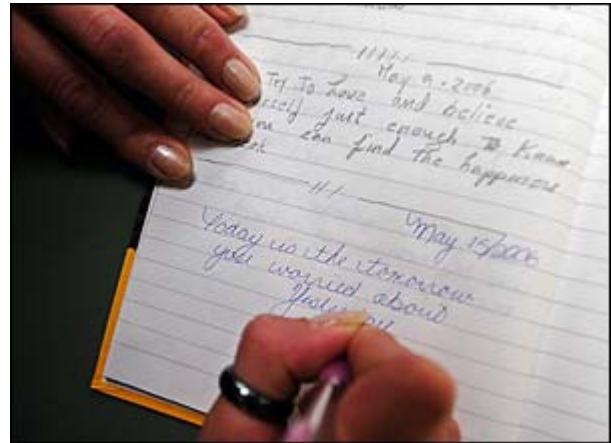 May 9 - 2006
Try To Love and believe
just enough To Know
can find the happiness
May 15/2006
Today is the tomorrow
you worried about
Yesterday